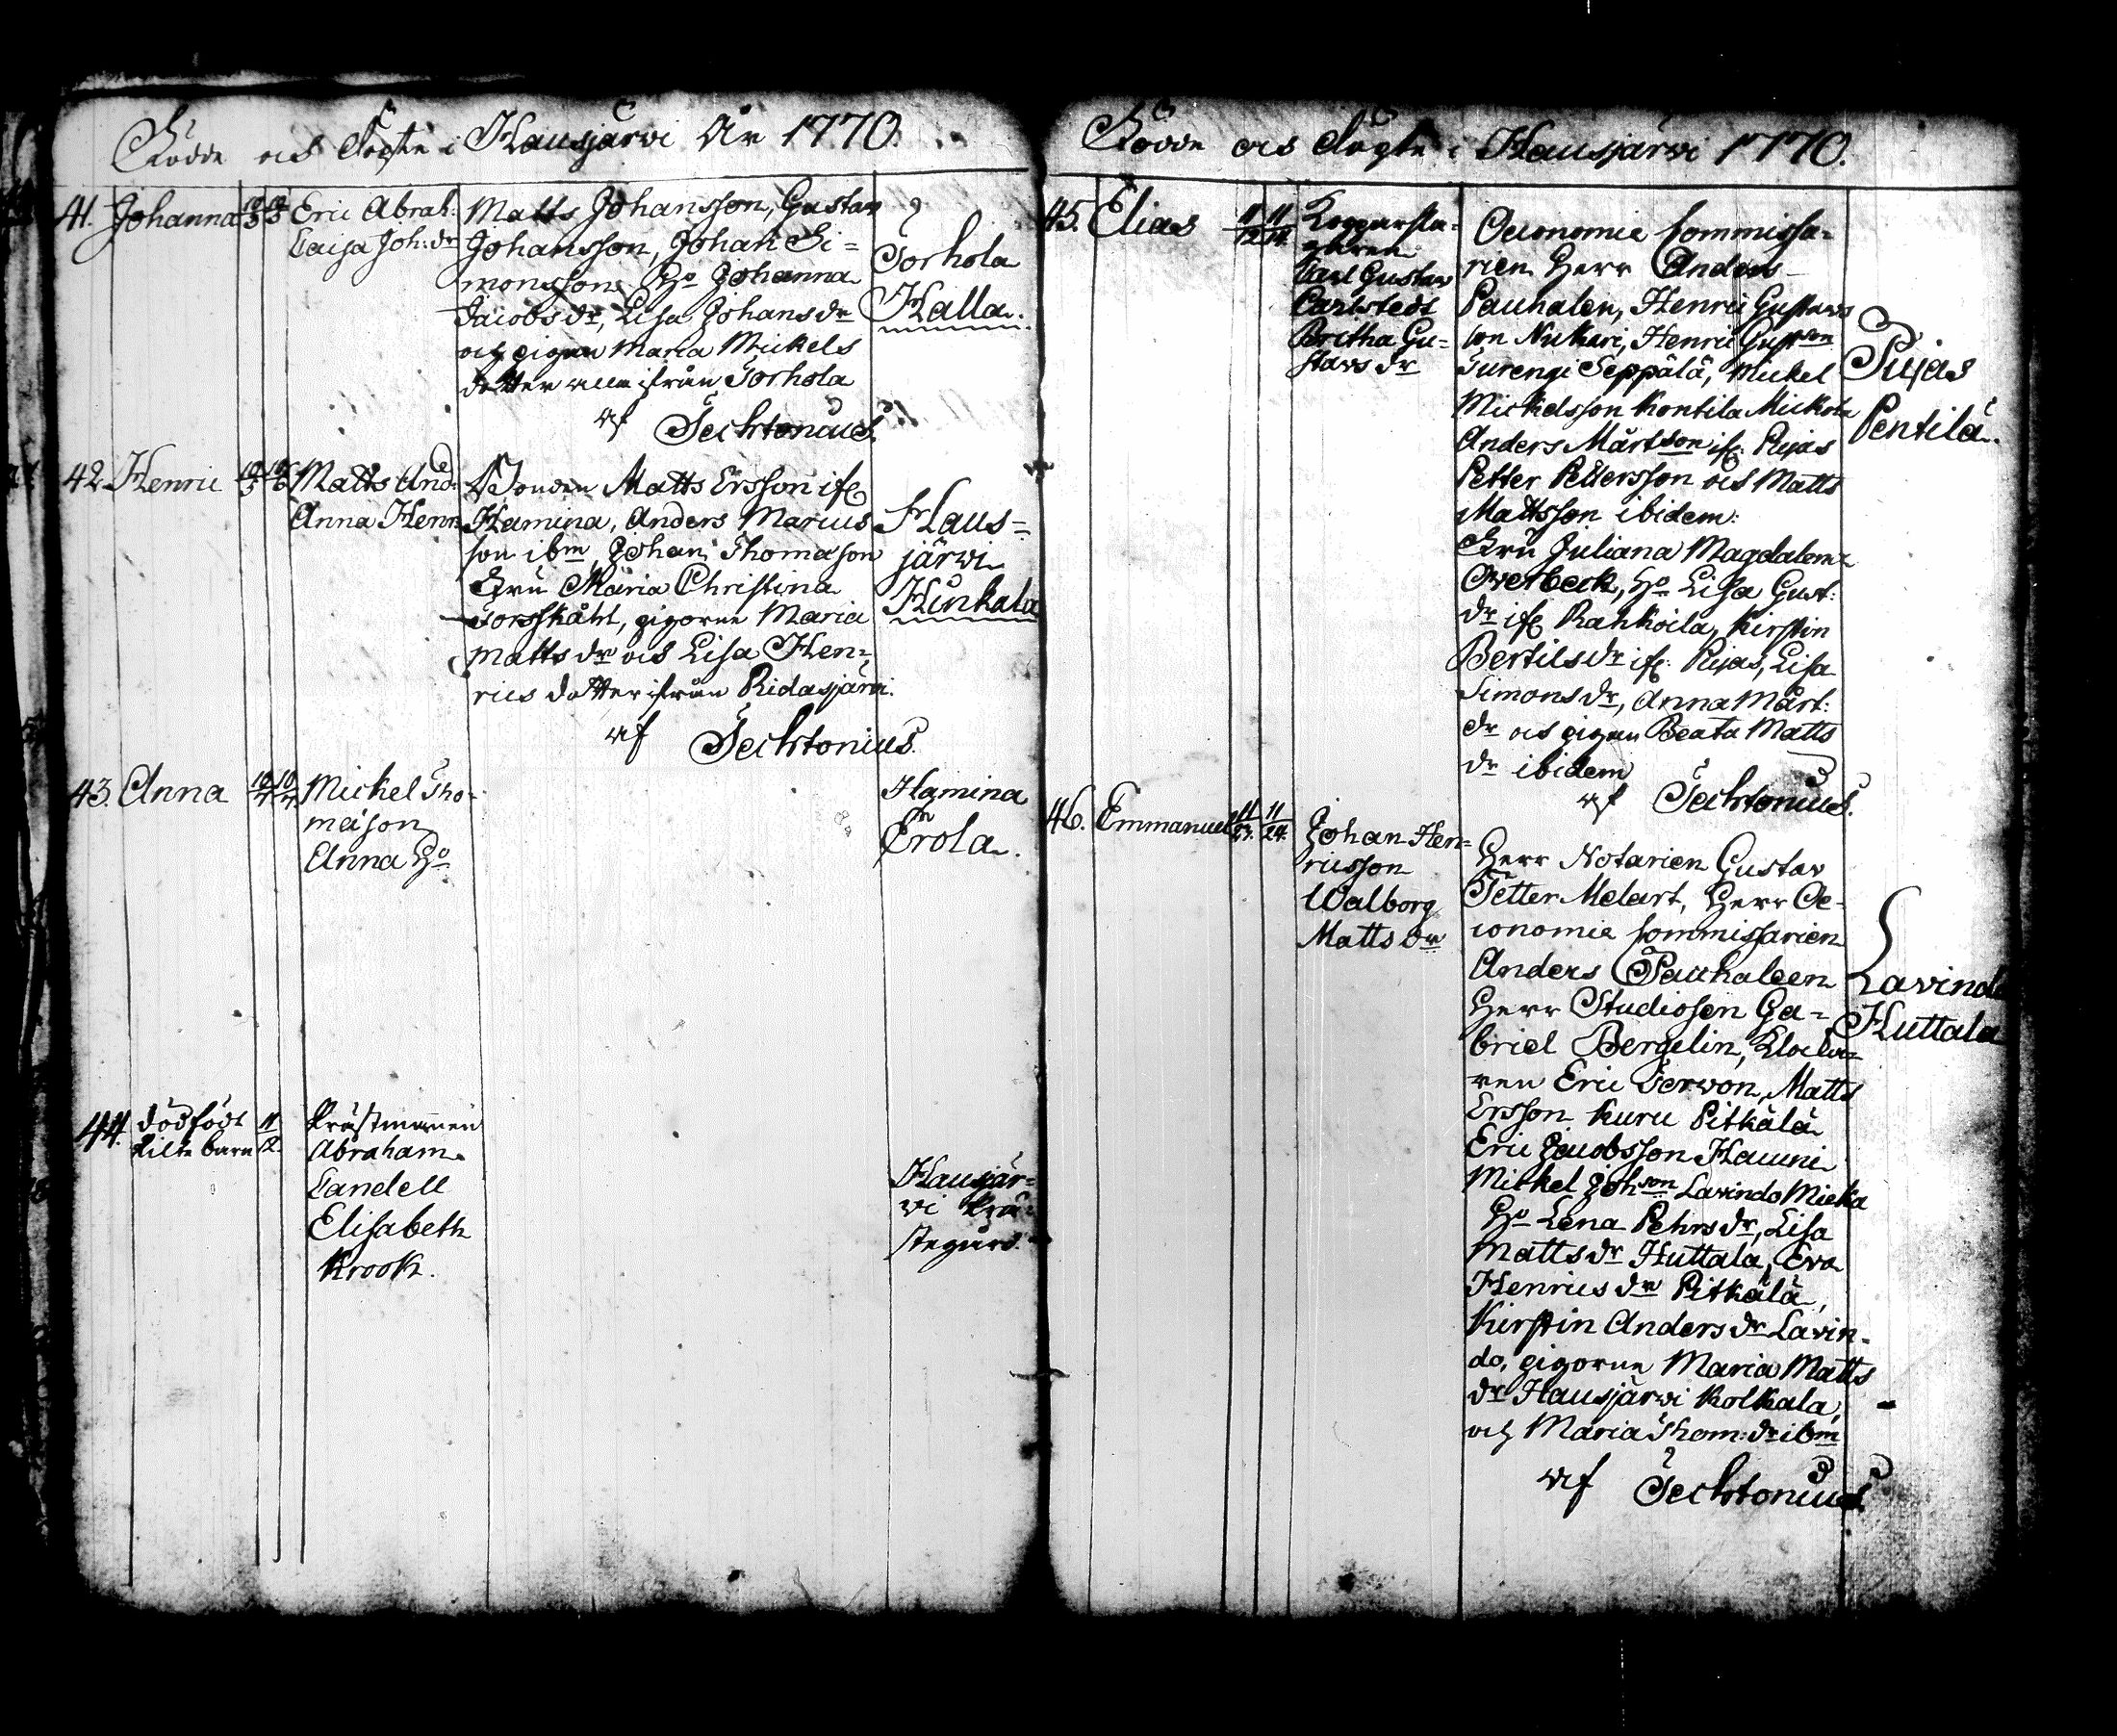 Födde och Döpte i Hausjärwi År 1770.
41. Johanna
Eric Abrah:
Caisa Joh: dr
Matts Johansson, Gustav
Johansson, Johan Si=
monsson, Ho Johanna
Jacobs dr, Lisa Johans dr
och pigan Maria Mickels
dotter alla ifrån Torhola
af Techtonius.
Torhola
Kalla.
42. Henric
Matts And:
Anna Henr:
Bonden Matts Ersson ifr
Hamina, Anders Marcus
son ibm, Johan Thomason
Fru Maria Christina
Forsskåhl, pigorne Maria
Matts dr och Lisa Hen=
rics dotter ifrån Ridasjärvi.
af Techtonius.
Haus=
järwi
Hinkala
43. Anna
Mickel Tho=
mæson
Anna Ho
Hamina
Erola.
44. dödfödt
lilte barn
11/12.
Prästmannen
Abraham
Landell
Elisabeth
Krook.
Hausjär=
wi Prä=
stegård.
Födde och Döpte i Hausjärwi 1770.
45. Elias
11/12 11/14.
Kopparsla=
garen
Carl Gustav
Carlstedt
Britha Gu=
stavs dr
Oeconomie Commissa=
rien Herr Anders
Pauhalen, Henric Gustavs
son Nukari, Henric Gustson
Turengi Seppälä, Mickel
Mickelsson Kontila Mickola
Anders Mårtson ifr Pujas
Petter Pettersson och Matts
Mattsson ibidem:
Fru Juliana Magdalena
Overbeck, Ho Lisa Gust:
dr ifr Rahkoila, Kirstin
Bertils dr ifr: Pujas, Lisa
Simons dr, Anna Mårt:
dr och pigan Beata Matts
dr ibidem
af Techtonius.
Pujas
Pentilä.
46. Emmanuel
11/23. 11/24.
Johan Hen=
ricsson
Walborg
Matts dr
Herr Notarien Gustav
Petter Melart, Herr Oe=
conomie Commissarien
Anders Pauhaleen
Herr Studiosen Ga=
briel Bergelin, Klocka=
ren Eric Servon, Matts
Ersson Kuru Pitkälä
Eric Jacobsson Hauni
Mickel Johson Lavindo Micka
Ho Lena Pehrs dr, Lisa
Matts dr Huttala, Eva
Henrics dr Pitkälä,
Kirstin Anders dr Lavin=
do, pigorne Maria Matts
dr Hausjärwi Kolkala,
och Maria Thom: dr ibm
af Techtonius
Lavindo
Huttala